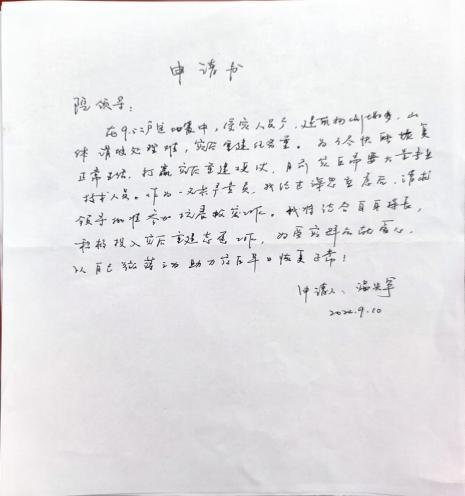 申请书
院领导：
在9.5泸定地震中，受灾人员多，建筑物倒塌多，山
体滑坡处理难，灾后重建任务重。为了尽快恢复
正常生活，打赢灾后重建硬仗，目前灾区需要大量专业
技术人员。作为一名共产党员，我经过深思熟虑后，请求
领导批准参加抗震救灾工作。我将结合自身特长，
积极投入灾后重建志愿工作，为受灾群众献爱心，
以自己
助力灾区早日恢复正常！
申请人：
2022.9.10